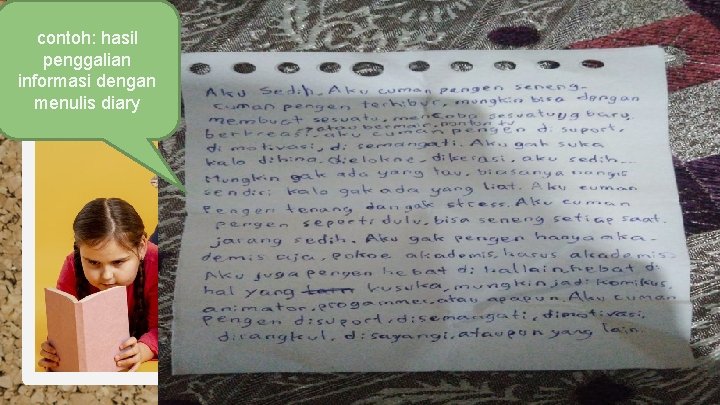 contoh: hasil
penggalian
informasi dengan
menulis diary
Aku Sedih. Aku cuman pengen seneng.
cuman pengen terhibur, mungkin bisa dengan
membuat sesuatu, mencoba sesuatu yg baru,
atau bermain, nonton tv
berkreasi, aku cuman pengen di suport,
di motivasi, di semangati. Aku gak suka
kalo dihina, dielokne, dikerasi, aku sedih...
Mungkin gak ada yang tau, biasanya nangis
sendiri kalo gak ada yang liat. Aku cuman
pengen tenang dan gak stress. Aku cuman
pengen seperti dulu, bisa seneng setiap saat.
jarang sedih. Aku gak pengen hanya aka-
demis aja, pokne akademis, harus akademis.
Aku juga pengen hebat di hal lain, hebat di
hal yang kusuka, mungkin jadi komikus,
animator, progammer, atau apapun. Aku cuman
pengen disuport, disemangati, dimotivasi,
dirangkul, disayangi, ataupun yang lain.